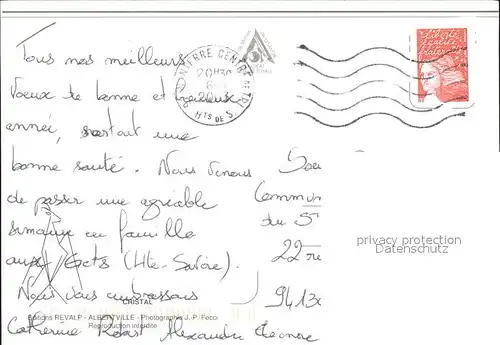 Tous nos meilleurs
Voeux de bonne et heureuse
année, surtout une
bonne santé. Nous venons
de passer une agréable
semaine en famille
aux Gets (Hte-Savoie).
Nous vous embrassons
Catherine Robert Alexandre Eléonore
CRISTAL
Editions REVALP - ALBERTVILLE - Photographie J.-P. Fecci
Reproduction interdite
NTERRE CENTR
20H30
HTS DE S.
Liberté
égalité
fraternité
Commun
du S
22
9413
privacy protection
Datenschutz